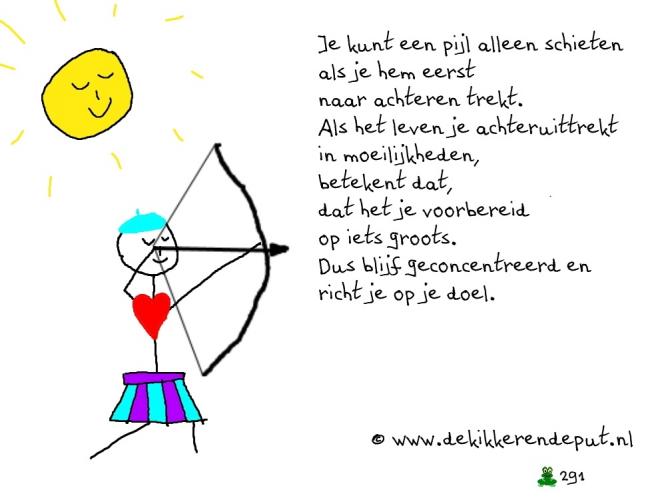 Je kunt een pijl alleen schieten
als je hem eerst
naar achteren trekt.
Als het leven je achteruittrekt
in moeilijkheden,
betekent dat,
dat het je voorbereid
op iets groots.
Dus blijf geconcentreerd en
richt je op je doel.
© www.dekikkerendeput.nl
291